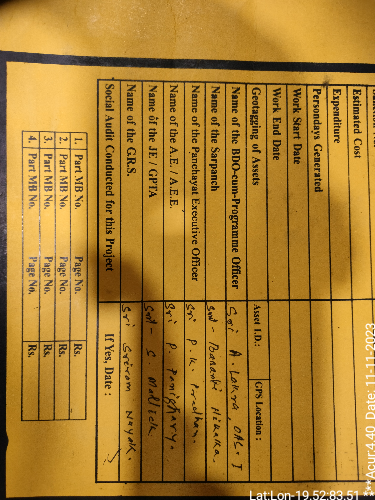 Estimated Cost
Expenditure
Persondays Generated
Work Start Date
Work End Date
Geotagging of Assets Asset I.D.: GPS Location :
Name of the BDO-cum-Programme Officer Sri A. Lakra OAS-I
Name of the Sarpanch Smt-
Name of the Panchayat Executive Officer Sri P. K. Pradhan.
Name of the A.E. / A.E.E. Sri P. Panigrahy.
Name of the JE / GPTA Smt- S. Mallick
Name of the G.R.S. Sri Sriram Nayak.
Social Audit Conducted for this Project If Yes, Date :
1. Part MB No. Page No. Rs.
2. Part MB No. Page No. Rs.
3. Part MB No. Page No. Rs.
4. Part MB No. Page No. Rs.
Lat:Lon-19.52:83.51 ***Acur:4.40 Date:11-11-2023